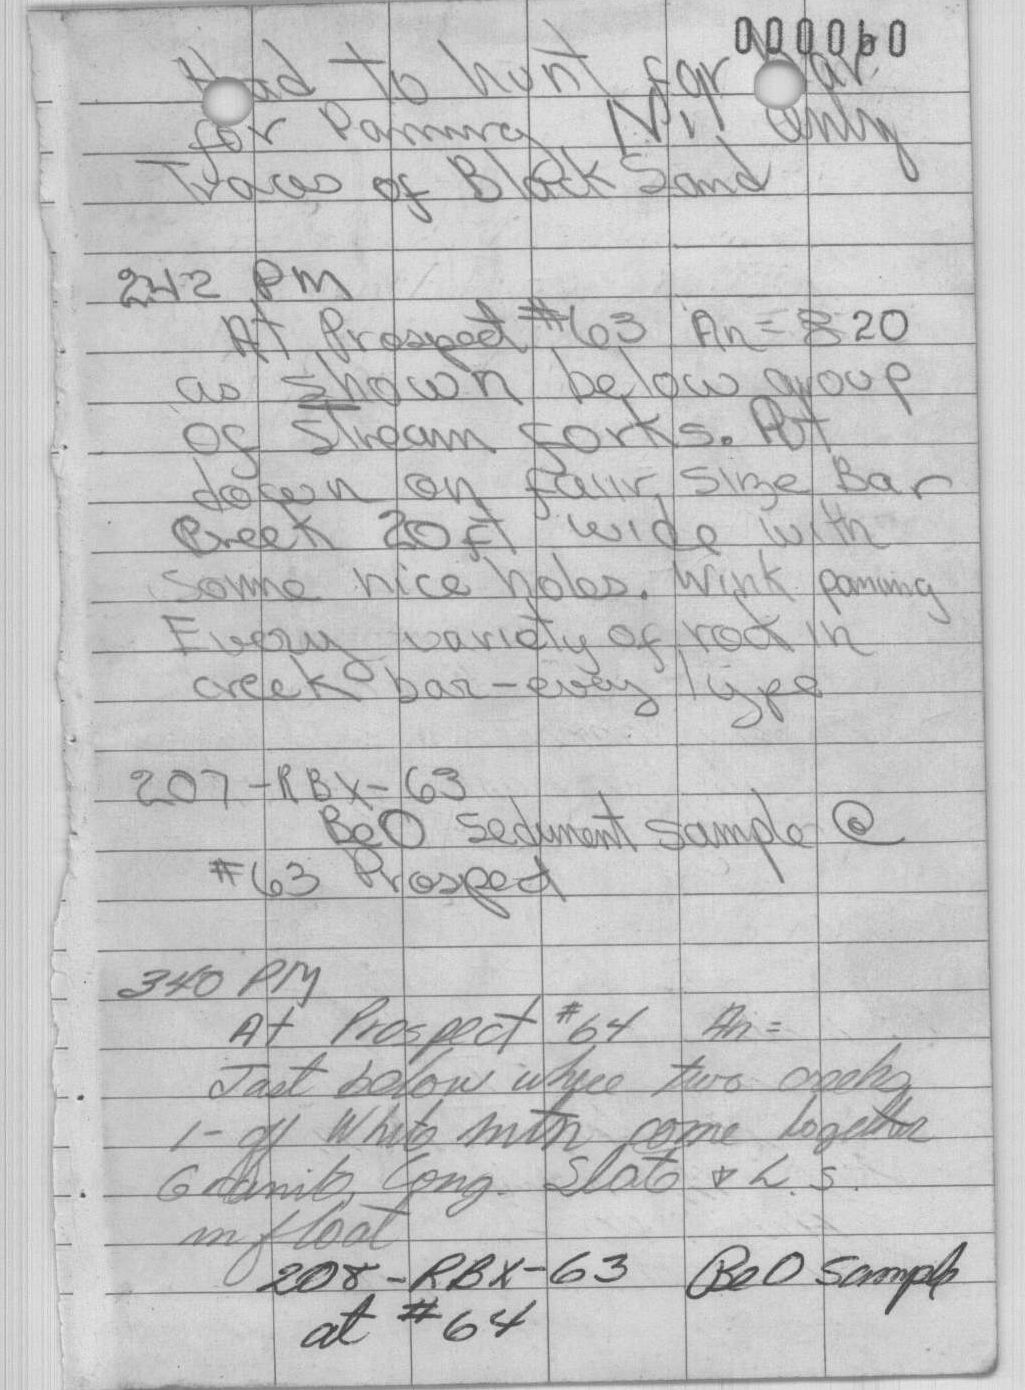 000060
Had to hunt for Bar
for Panning Nil only
Traces of Black Sand
242 PM
At Prospect #63 An = 820
as shown below group
of stream forks. Put
down on fair size Bar
Creek 20ft wide with
some nice holes. Wink panning
Every variety of rock in
creek bar-every type
207-RBX-63
BeO sediment sample @
#63 Prospect
340 PM
At Prospect #64 An =
Just below where two creeks
1- off White mtn come together
Granite, Cong. Slate & L.S.
in float
208-RBX-63 BeO sample
at #64